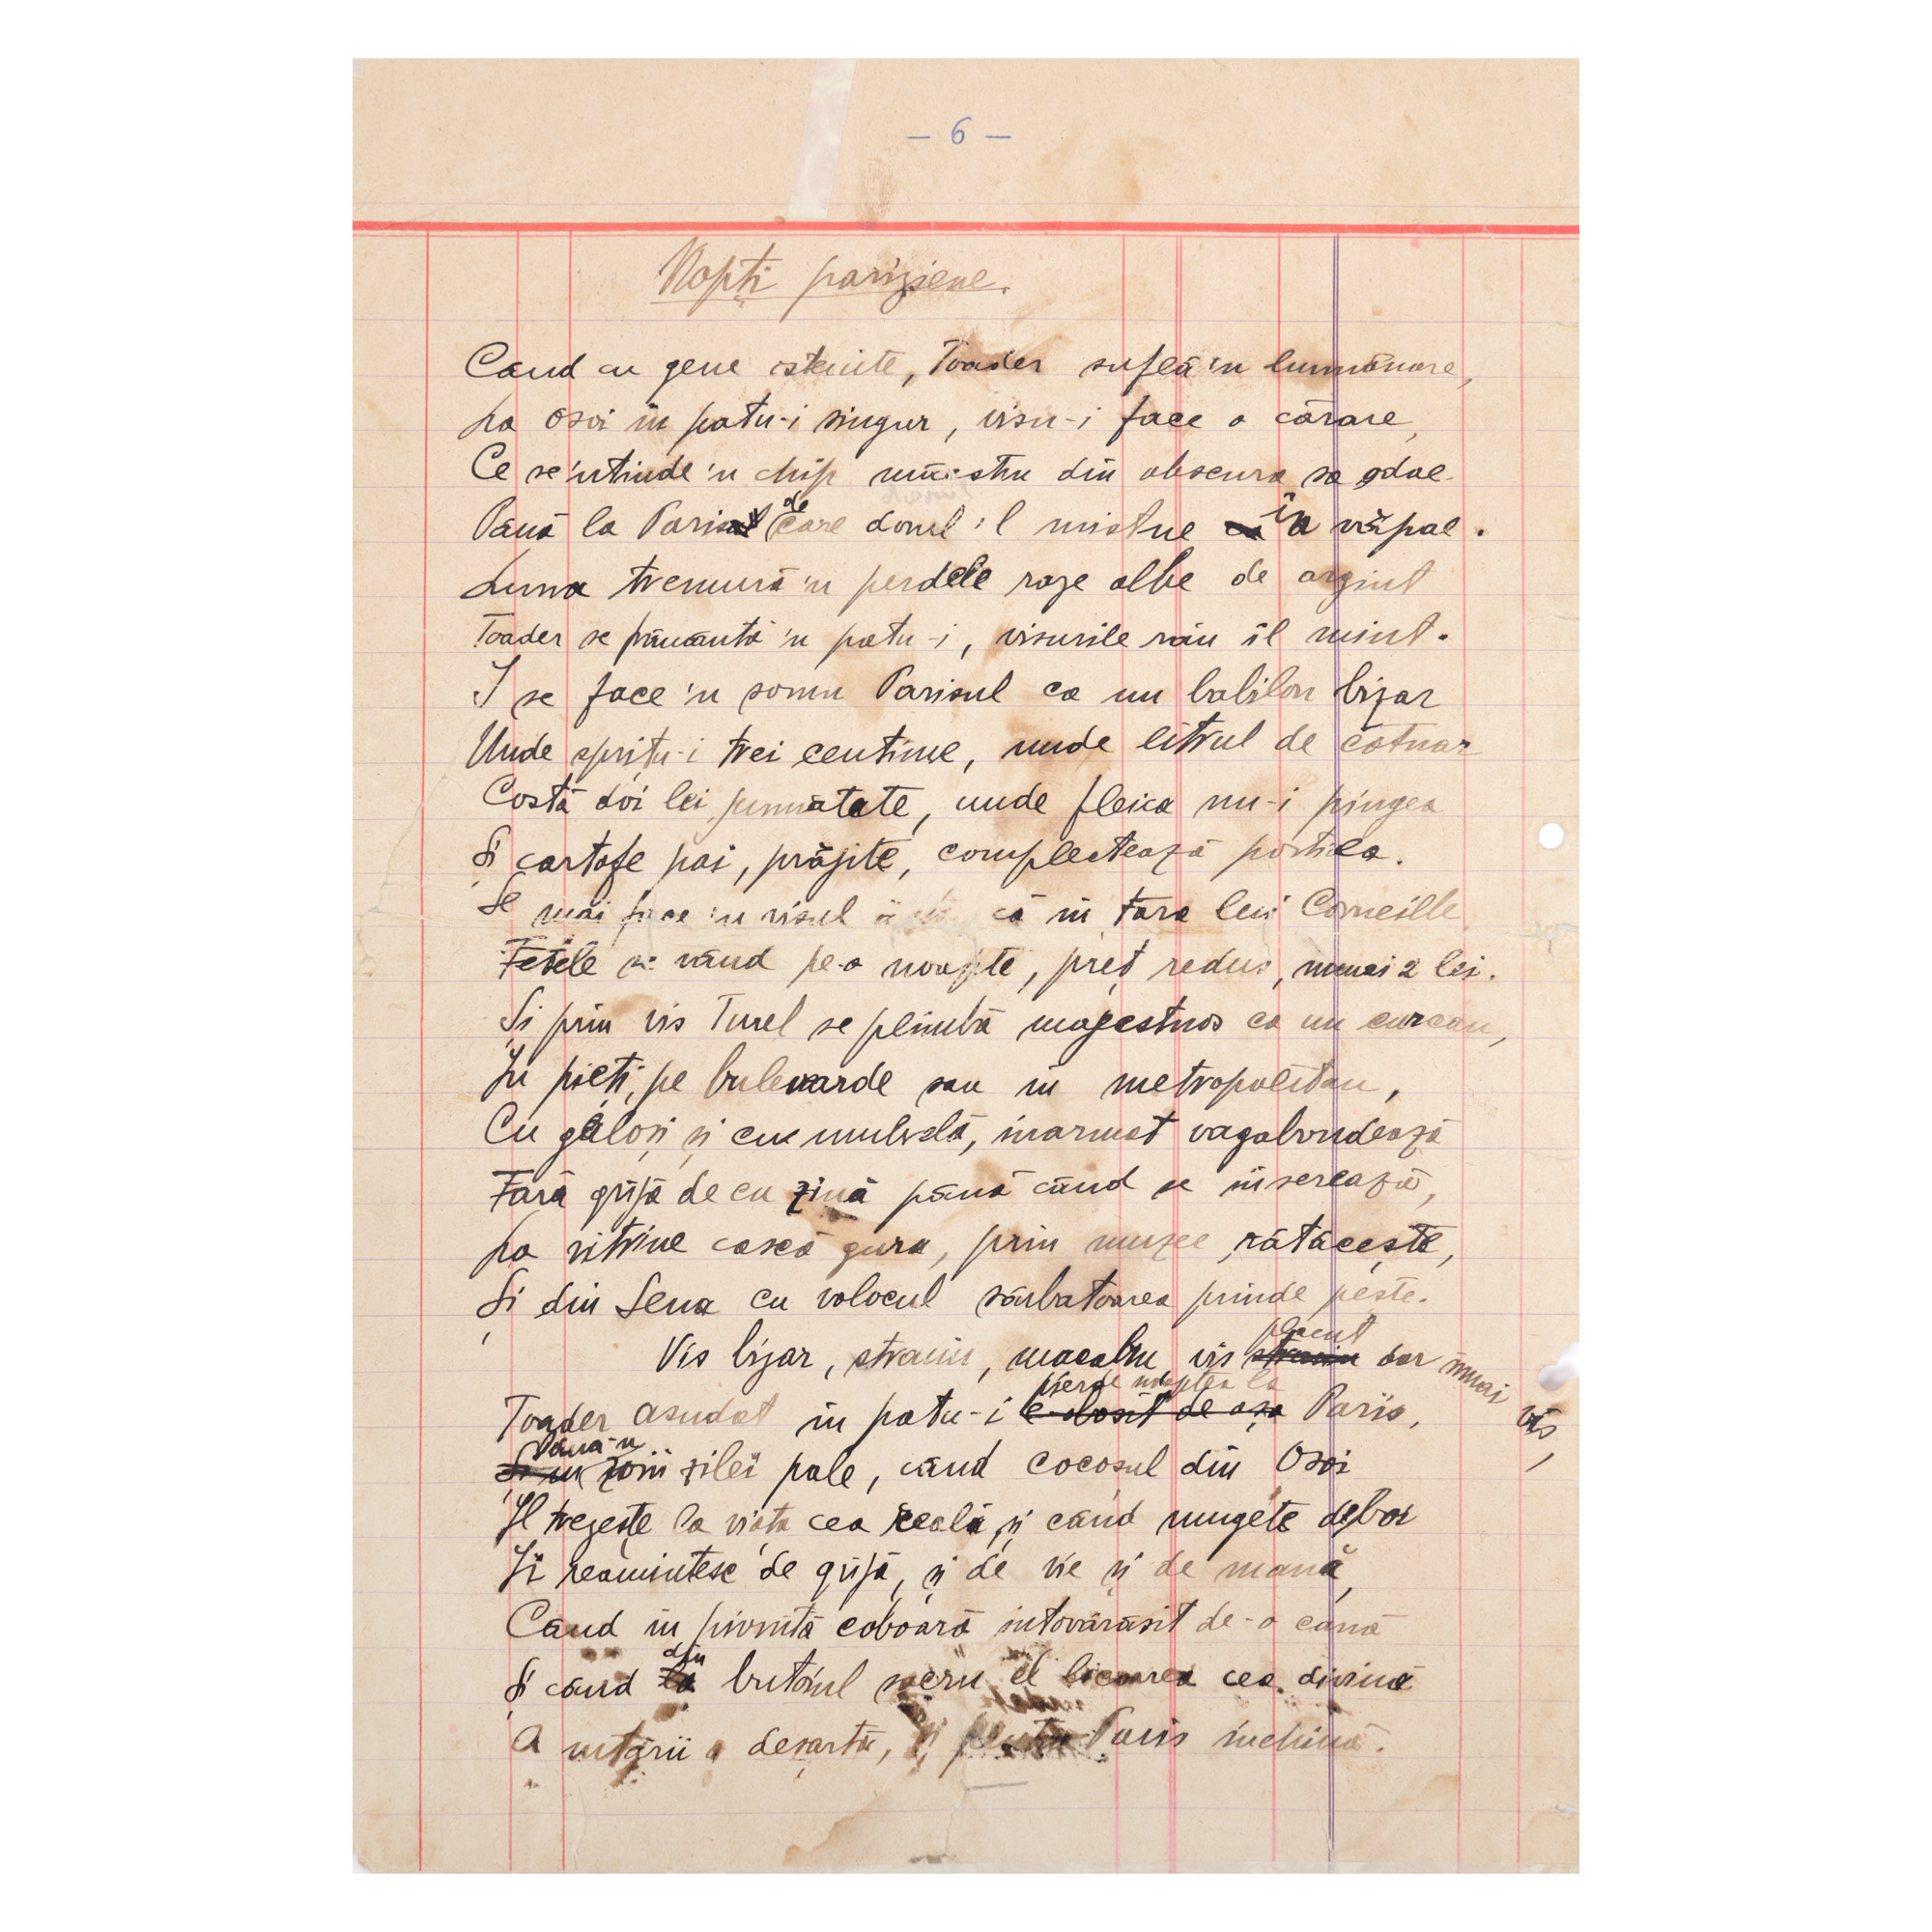 — 6 —
Nopți pariziene.
Cand cu gene ostenite, Toader suflă 'n lumânare,
La Osoi în patu-i singur, visu-i face o cărare,
Ce se 'ntinde 'n chip sinistru din obscura sa odae
Până la Paris de care dorul 'l mistue în văpae.
Luna tremură 'n perdele raze albe de argint
Toader se frământă 'n patu-i, visurile rău îl mint.
I se face 'n somn Parisul ca un babilon bizar
Unde sprițu-i trei centime, unde litrul de cotnar
Costă doi lei jumătate, unde fleica nu-i pingea
Și cartofe pai, prăjite, complectează porția.
Se mai face 'n visul că în țara lui Corneille
Fetele se vând pe-o noapte, preț redus, numai 2 lei.
Și prin vis Turel se plimbă majestuos ca un curcan,
În piețe, pe bulevarde sau în metropolitan,
Cu galoși și cu umbrelă, înarmat vagabondează
Fară grijă de cu ziuă până când se înserează,
La vitrine cască gura, prin muzee rătăcește,
Și din Sena cu volocul sărbatoarea prinde pește.
Vis bizar, straniu, macabru, vis placut dar numai vis,
Toader asudat în patu-i pierde noaptea la Paris,
Până-n zorii zilei pale, când cocoșul din Osoi
Il trezește la viața cea reală și când mugete de boi
Îi reamintesc de grijă, și de vie și de mană,
Când în pivniță coboară întovărășit de-o cană
Și când din butoiul sacru el licoarea cea divină
A uitării o deșartă, și pentru Paris închină.